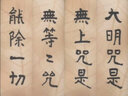 大明咒是
無上咒是
無等等咒
能除一切